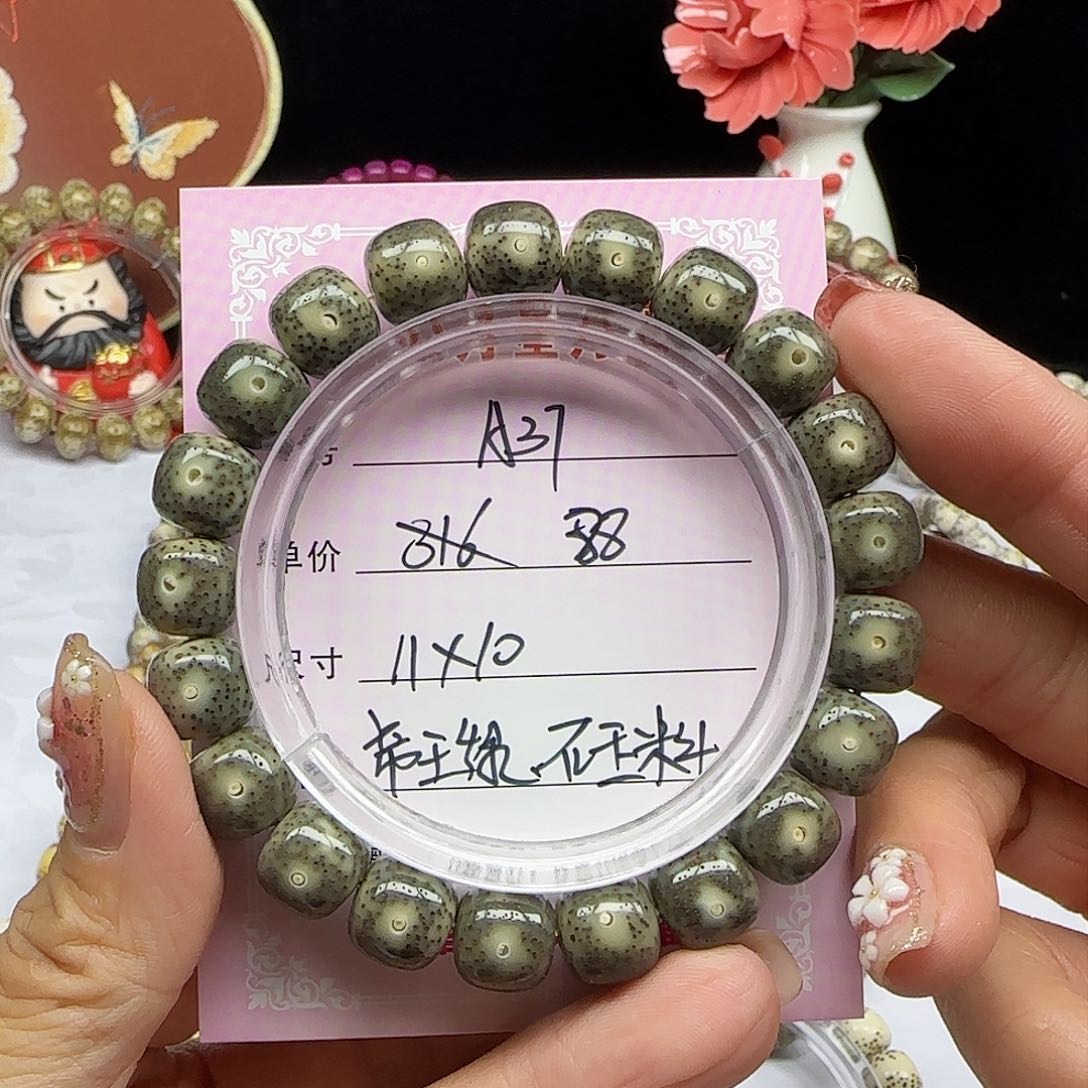 A37
单价 316 88
尺寸 11×10
帝王绿 石玉米料